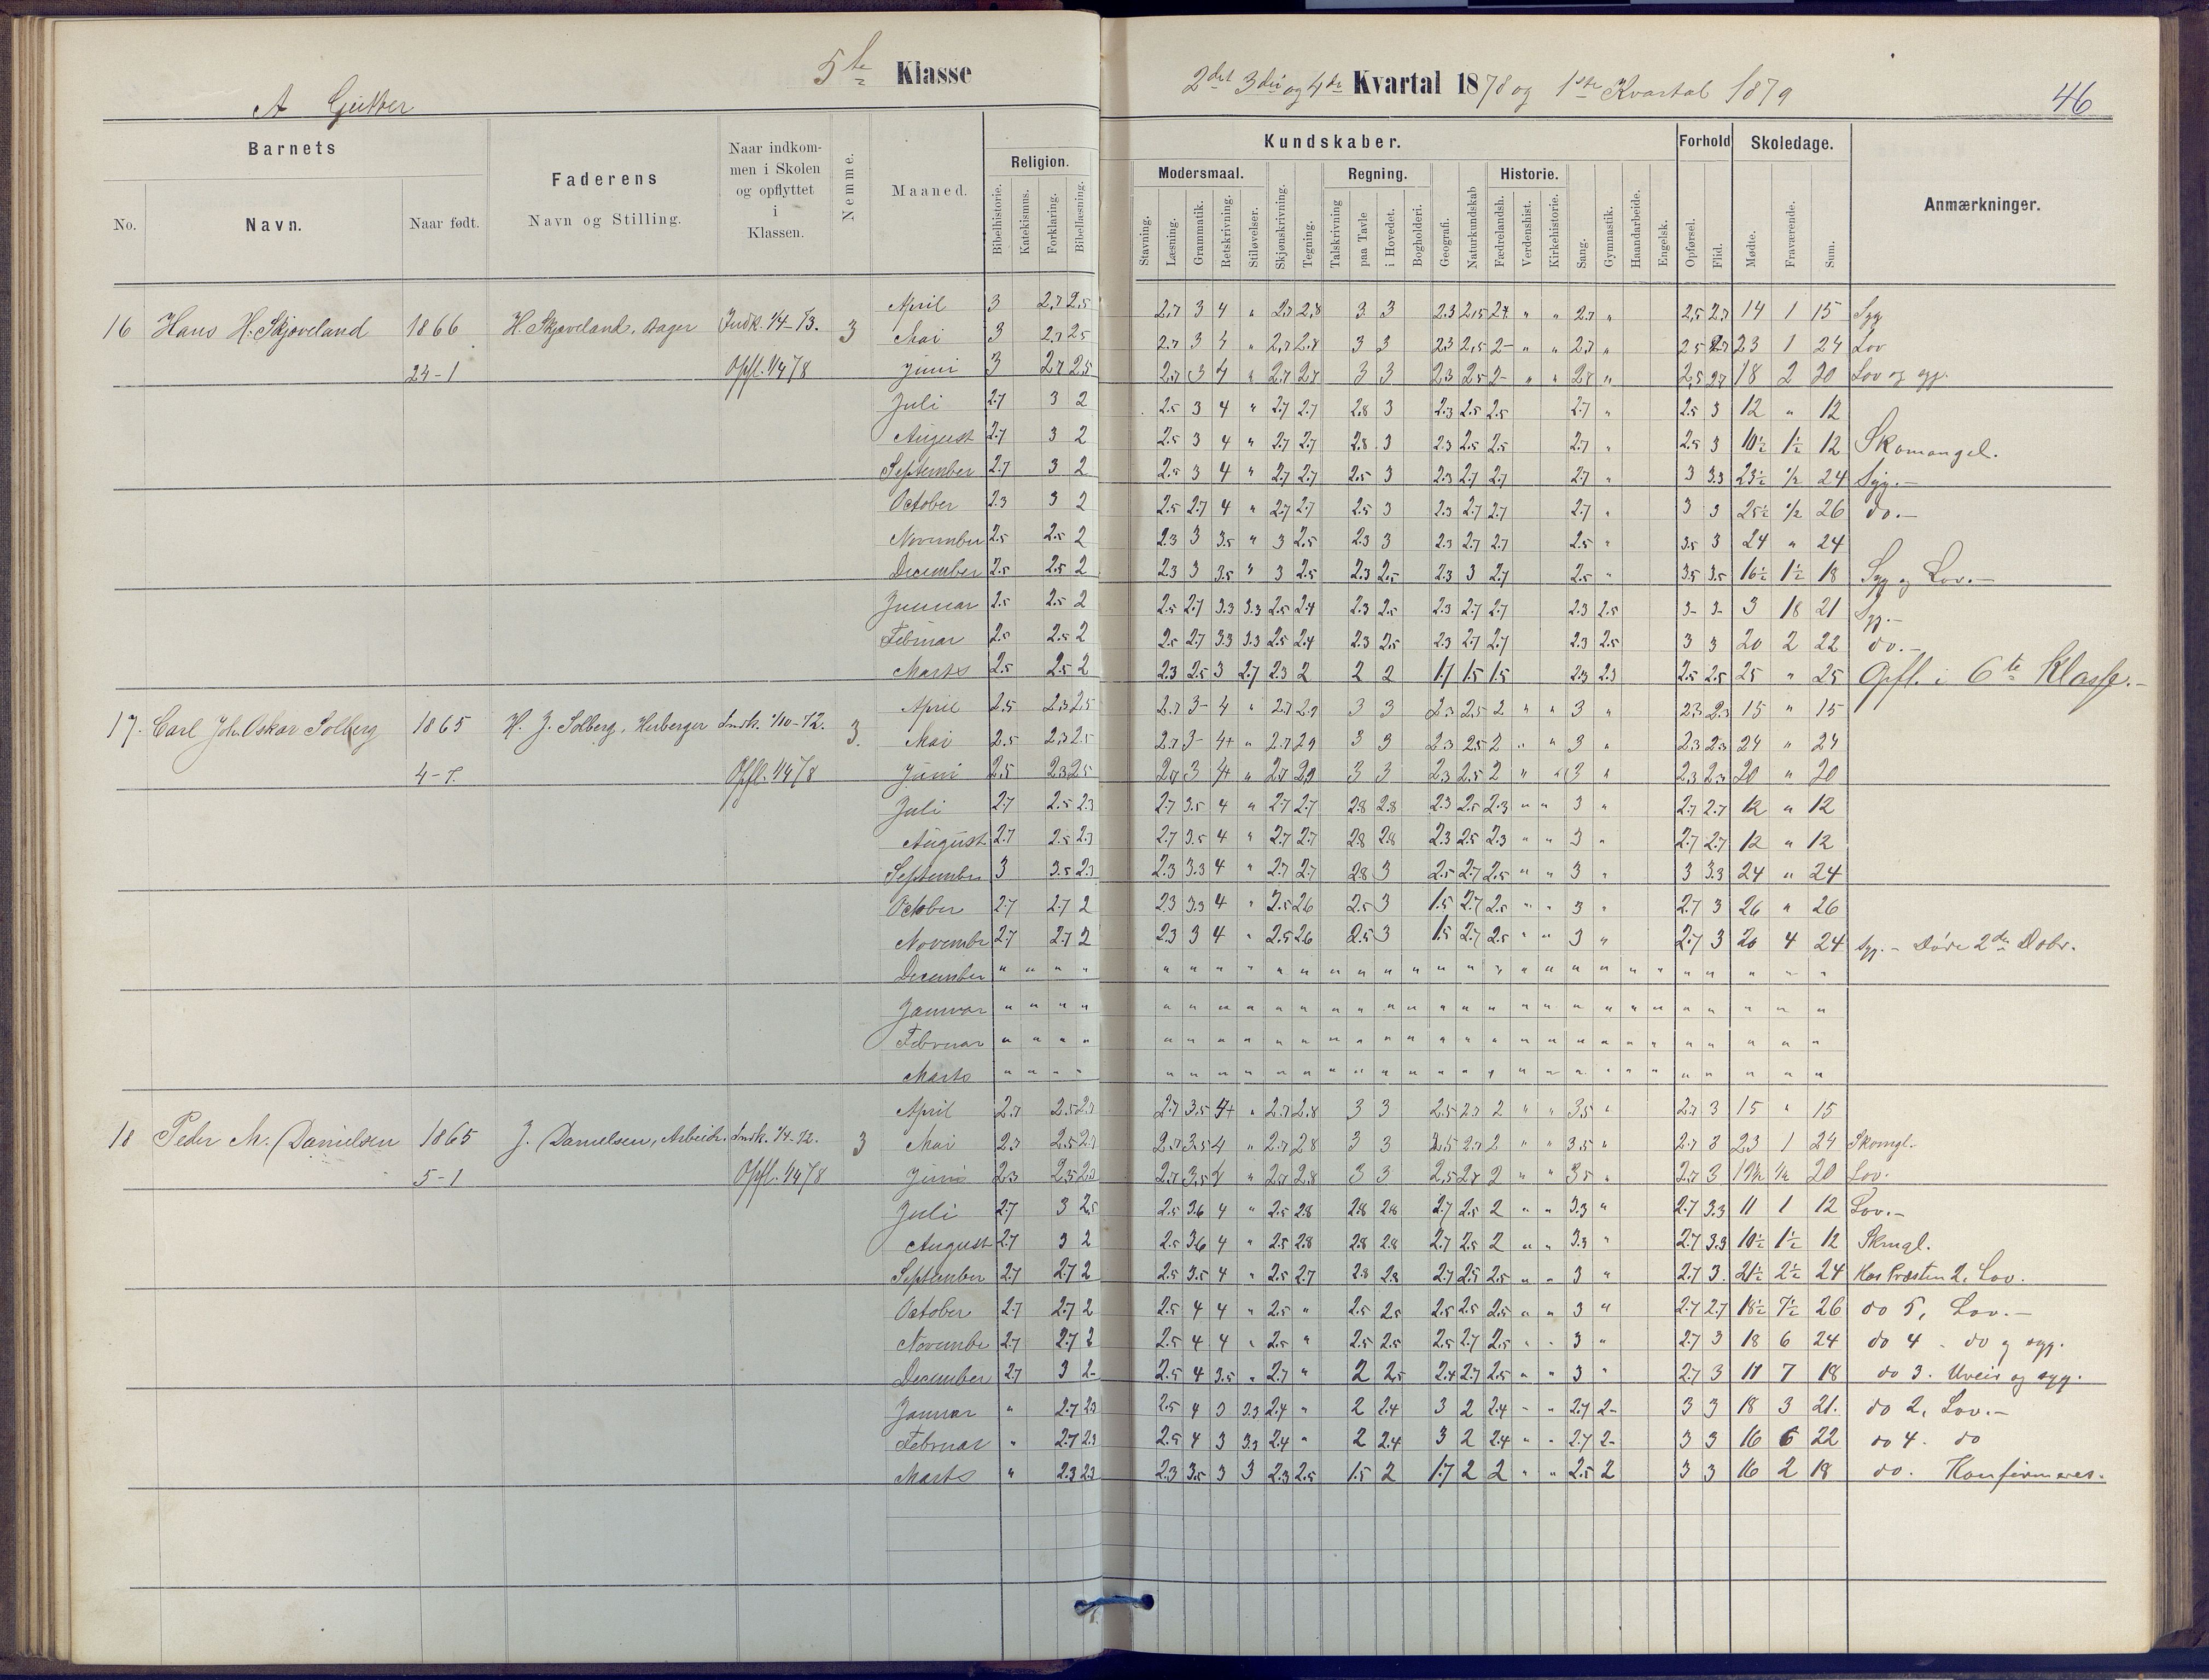 5te Klasse
2det 3die og 4de Kvartal 1878 og 1ste Kvartal 1879
46
A Gutter
Barnets
No.
Navn.
Naar født.
Faderens
Navn og Stilling.
Naar indkom-
men i Skolen
og opflyttet
i
Klassen.
Nemme.
Maaned.
Religion.
Bibelhistorie.
Katekismus.
Forklaring.
Bibellæsning.
Kundskaber.
Modersmaal.
Stavning.
Læsning.
Grammatik.
Retskrivning.
Stiløvelser.
Skjønskrivning.
Tegning.
Regning.
Talskrivning
paa Tavle
i Hovedet.
Bogholderi.
Geografi.
Naturkundskab
Historie.
Fædrelandsh.
Verdenshist.
Kirkehistorie.
Sang.
Gymnastik.
Haandarbeide.
Engelsk.
Forhold
Opførsel.
Flid.
Skoledage.
Mødte.
Fraværende.
Sum.
Anmærkninger.
April 3 2.7 2.5 2.7 3 4 " 2.7 2.8 3 3 2.3 2.5 2.7 " " 2.7 " 2.5 2.7 14 1 15 Syg
16 Hans H. Skjoveland 1866 H. Skjoveland, Bager Indk. 1/4-73. 3 Mai 3 2.7 2.5 2.7 3 4 " 2.7 2.8 3 3 2.3 2.5 2- " " 2.7 " 2.5 2.7 23 1 24 Lov
24-1 Opfl. 1/4 78 Juni 3 2.7 2.5 2.7 3 4 " 2.7 2.7 3 3 2.3 2.5 2- " " 2.8 " 2.5 2.7 18 2 20 Lov og syg.
Juli 2.7 3 2 2.5 3 4 " 2.7 2.7 2.8 3 2.3 2.5 2.5 2.7 " 2.5 3 12 " 12
August 2.7 3 2 2.5 3 4 " 2.7 2.7 2.8 3 2.3 2.5 2.5 2.7 " 2.5 3 10½ 1½ 12 Skomangel.
September 2.7 3 2 2.5 3 4 " 2.7 2.7 2.5 3 2.3 2.7 2.7 2.7 " 3 3.3 23½ ½ 24 Syg.-
October 2.3 3 2 2.5 2.7 4 " 2.7 2.7 2.5 3 2.3 2.7 2.7 2.7 " 3 3 25½ ½ 26 do.-
November 2.5 2.5 2 2.3 3 3.5 " 3 2.5 2.3 3 2.3 2.7 2.7 2.5 " 3.5 3 24 " 24
December 2.5 2.5 2 2.3 3 3.5 " 3 2.5 2.3 2.5 2.3 3 2.7 2.5 " 3.5 3.5 16½ 1½ 18 Syg og Lov.-
Januar 2.5 2.5 2 2.5 2.7 3.3 3.3 2.5 2.4 2.3 2.5 2.3 2.7 2.7 2.3 2.5 3- 3- 3 18 21 Syg.-
Februar 2.5 2.5 2 2.5 2.7 3.3 3.3 2.5 2.4 2.3 2.5 2.3 2.7 2.7 2.3 2.5 3 3 20 2 22 do.-
Marts 2.5 2.5 2 2.3 2.5 3 2.7 2.3 2 2 2 1.7 1.5 1.5 2.3 2.3 2.5 2.5 25 " 25 Opfl. i 6te Klasse.-
April 2.5 2.3 2.5 2.7 3- 4 " 2.7 2.9 3 3 2.3 2.5 2 " " 3 " 2.3 2.3 15 " 15
17. Carl Joh. Oskar Solberg 1865 H. J. Solberg, Herberger Indk. 1/10-72. 3. Mai 2.5 2.3 2.5 2.7 3- 4+ " 2.7 2.9 3 3 2.3 2.5 2 " " 3 " 2.3 2.3 24 " 24
4-7. Opfl. 1/4 78 Juni 2.5 2.3 2.5 2.7 3 4+ " 2.7 2.9 3 3 2.3 2.5 2 " " 3 " 2.3 2.3 20 " 20
Juli 2.7 2.5 2.3 2.7 3.5 4 " 2.7 2.7 2.8 2.8 2.3 2.5 2.3 " " 3 " 2.7 2.7 12 " 12
August 2.7 2.5 2.3 2.7 3.5 4 " 2.7 2.7 2.8 2.8 2.3 2.5 2.3 " " 3 " 2.7 2.7 12 " 12
September 3 3.5 2.3 2.3 3.3 4 " 2.7 2.7 2.8 3 2.5 2.7 2.5 " " 3 " 3 3.3 24 " 24
October 2.7 2.7 2 2.3 3.3 4 " 2.5 2.6 2.5 3 1.5 2.7 2.5 " " 3 " 2.7 3 26 " 26
Novembr 2.7 2.7 2 2.3 3 4 " 2.5 2.6 2.5 3 1.5 2.7 2.5 " " 3 " 2.7 3 20 4 24 syg.- Døde 2den Debr.
December " " " " " " " " " " " " " " " " " " " " " " " " " " "
Januar " " " " " " " " " " " " " " " " " " " " " " " " " " "
Februar " " " " " " " " " " " " " " " " " " " " " " " " " " "
Marts " " " " " " " " " " " " " " " " " " " " " " " " " " "
April 2.3 2.5 2.3 2.7 3.5 4+ " 2.7 2.8 3 3 2.5 2.7 2 " " 3.5 " 2.7 3 15 " 15
18 Peder M. Danielsen 1865 J. Danielsen, Arbeidr. Indk. 1/4-72. 3 Mai 2.3 2.5 2.3 2.7 3.5 4 " 2.7 2.8 3 3 2.5 2.7 2 " " 3.5 " 2.7 3 23 1 24 Skomgl.
5-1 Opfl. 1/4 78 Juni 2.3 2.5 2.3 2.7 3.5 4 " 2.7 2.8 3 3 2.5 2.7 2 " " 3.5 " 2.7 3 19½ ½ 20 Lov.
Juli 2.7 3 2.5 2.5 3.6 4 " 2.5 2.8 2.8 2.8 2.7 2.5 2 " " 3.3 " 2.7 3.3 11 1 12 Lov.-
August 2.7 3 2 2.5 3.6 4 " 2.5 2.8 2.8 2.8 2.7 2.5 2 " " 3.3 " 2.7 3.3 10½ 1½ 12 Skmgl.
September 2.7 2.7 2 2.5 3.5 4 " 2.5 2.7 2.8 2.8 2.7 2.5 2.5 " " 3 " 2.7 3. 21½ 2½ 24 Hos Præsten 2, Lov.
October 2.7 2.7 2 2.5 4 4 " 2.5 " 2.5 2.5 2.5 2.5 2.5 " " 3 " 2.7 2.7 18½ 7½ 26 do 5, Lov.-
Novembr 2.7 2.7 2 2.5 4 4 " 2.5 " 2.5 2.5 2.5 2.7 2.5 " " 3 " 2.7 3 18 6 24 do 4 - do og syg.
December 2.7 3 2- 2.5 4 3.5 " 2.7 " 2 2.5 2.4 2.7 2.5 " " 3 " 2.7 3 11 7 18 do 3. Uveir og syg.
Januar " 2.7 2.3 2.5 4 3 3.3 2.4 " 2 2.4 3 2 2.4 " " 2.7 2- 3 3 18 3 21. do 2, Lov.-
Februar " 2.7 2.3 2.5 4 3 3.3 2.4 " 2 2.4 3 2 2.4 " " 2.7 2- 3 3 16 6 22 do 4. do
Marts " 2.3 2.3 2.3 3.5 3 3 2.3 2.5 1.5 2 1.7 2 2 " " 2.5 2 3 3 16 2 18 do. Konfirmeres.